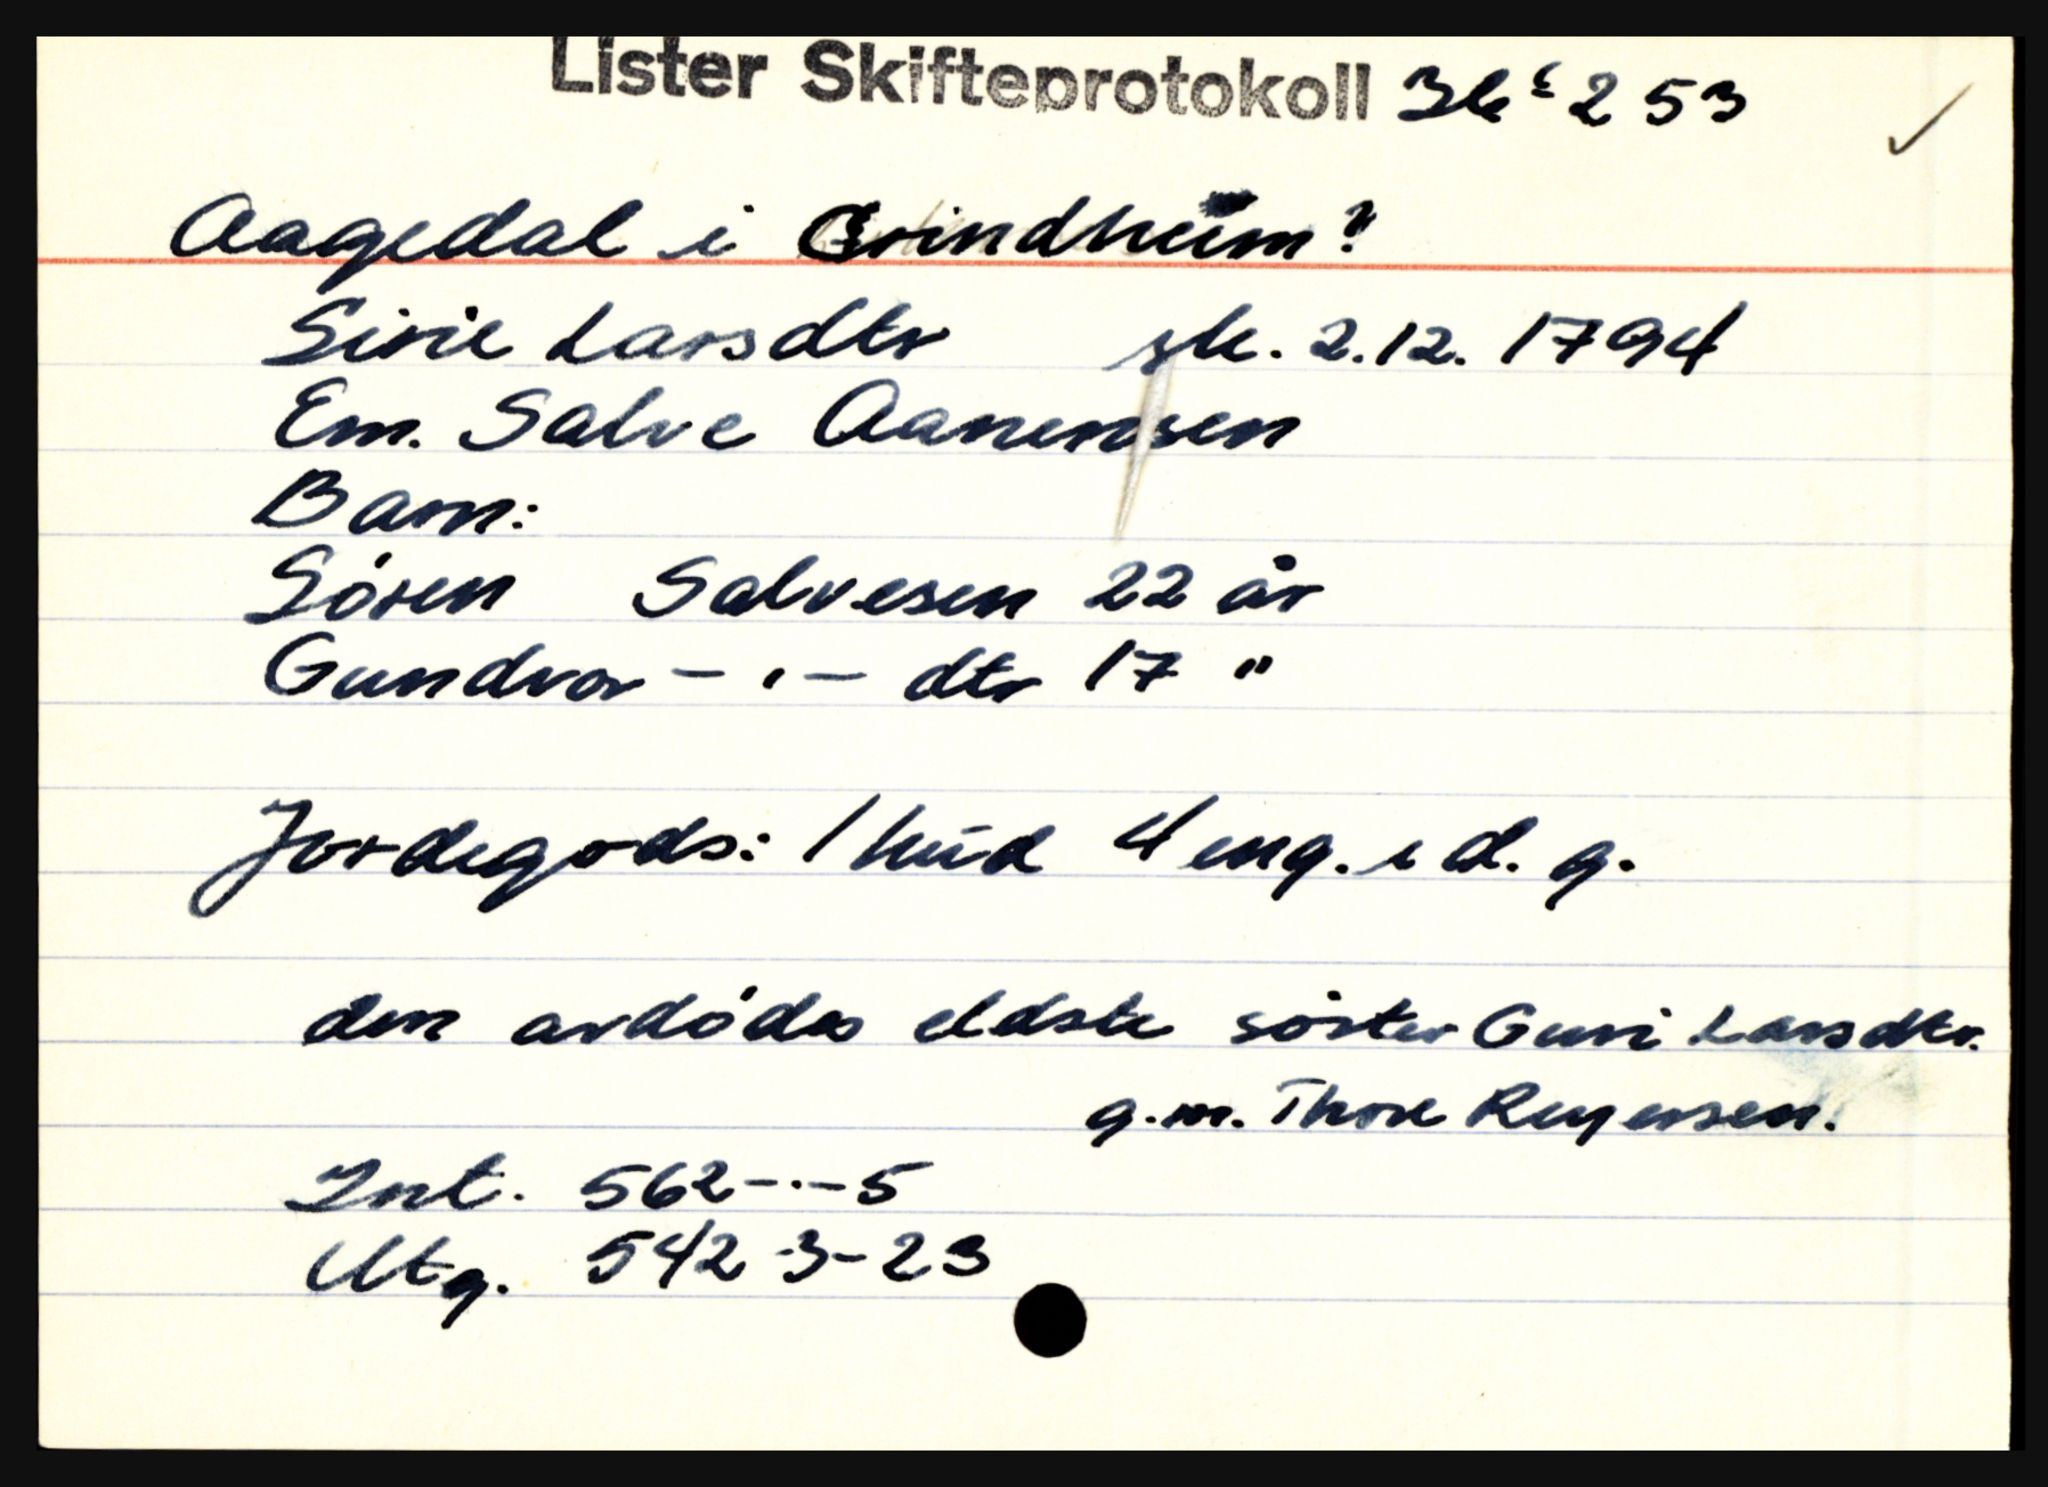 Lister Skifteprotokoll 3b 253
Aagedal i Grindheim?
Sirie Larsdtr sk. 2.12. 1794
Em. Salve Aanensen
Barn:
Sören Salvesen 22 år
Gundvor - " - dtr 17 "
Jordegods: 1 hud 4 eng. i d. g.
den avdödes eldste söster Guri Larsdtr.
g.m. Thore Reyersen.
Int. 562-.-5
Utg. 542-3-23